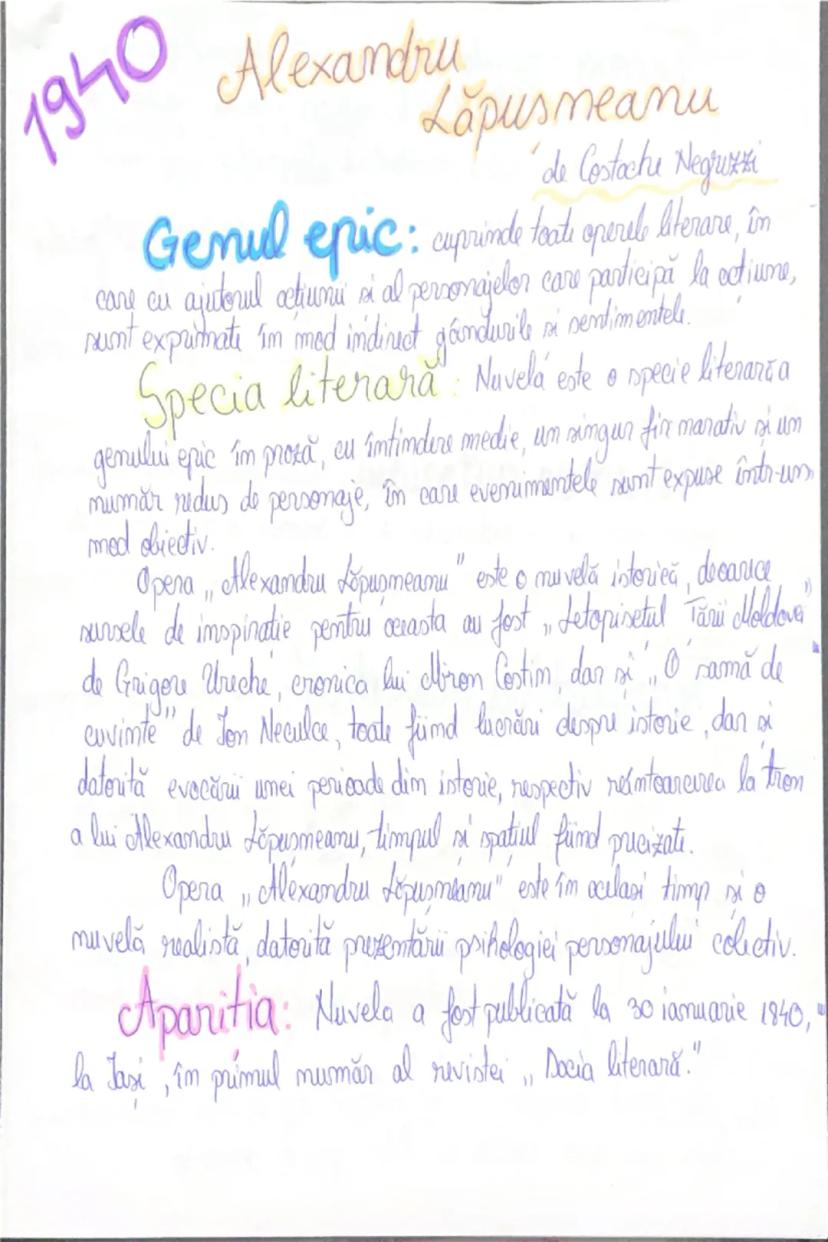 1940
Alexandru
Lăpușneanu
de Costache Negruzzi
Genul epic: cuprinde toate operele literare, în
care cu ajutorul acțiunii și al personajelor care participă la acțiune,
sunt exprimate în mod indirect gândurile și sentimentele.
Specia literară: Nuvela este o specie literară a
genului epic în proză, cu întindere medie, un singur fir narativ și un
număr redus de personaje, în care evenimentele sunt expuse într-un
mod obiectiv.
Opera „Alexandru Lăpușneanu" este o nuvelă istorică, deoarece
sursele de inspirație pentru aceasta au fost „Letopisetul Țării Moldovei"
de Grigore Ureche, cronica lui Miron Costin, dar și „O samă de
cuvinte" de Ion Neculce, toate fiind lucrări despre istorie, dar și
datorită evocării unei perioade din istorie, respectiv reîntoarcerea la tron
a lui Alexandru Lăpușneanu, timpul și spațiul fiind precizate.
Opera „Alexandru Lăpușneanu" este în același timp și o
nuvelă realistă, datorită prezentării psihologiei personajului colectiv.
Apariția: Nuvela a fost publicată la 30 ianuarie 1840,
la Iași, în primul număr al revistei „Dacia literară."